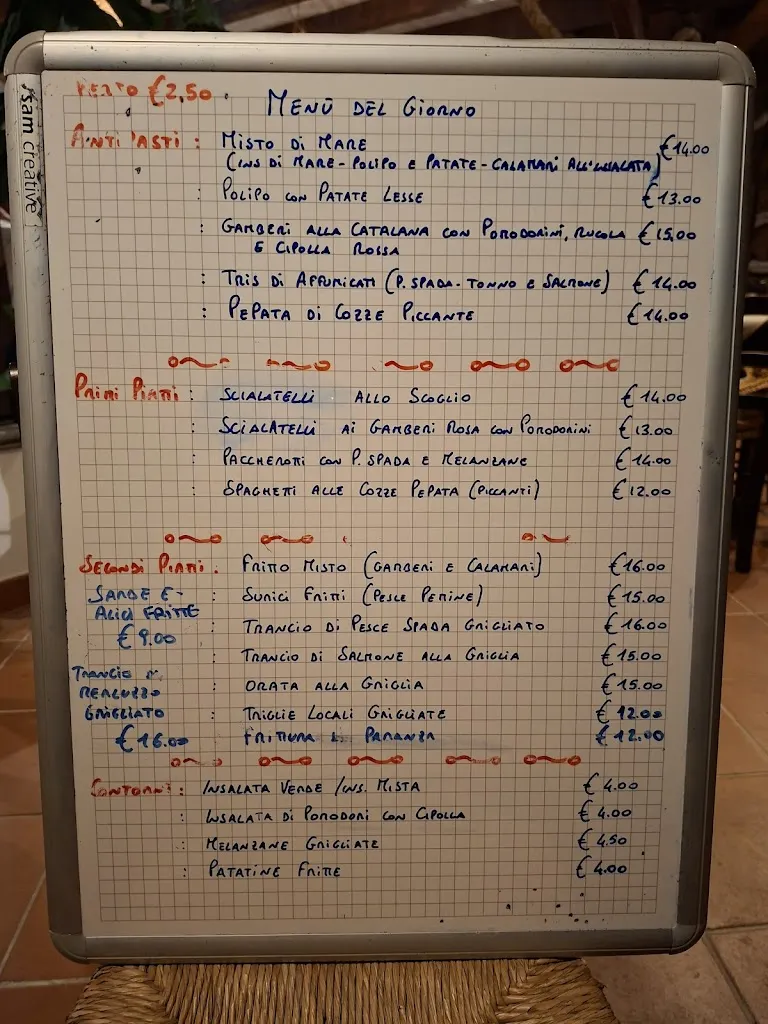 €2,50
MENÙ DEL GIORNO
ANTIPASTI : MISTO DI MARE €14.00
(INS DI MARE - POLIPO E PATATE - CALAMARI ALL'INSALATA)
: POLIPO CON PATATE LESSE €13.00
: GAMBERI ALLA CATALANA CON POMODORINI, RUCOLA €15,00
E CIPOLLA ROSSA
: TRIS DI AFFUMICATI (P. SPADA - TONNO E SALMONE) €14.00
: PEPATA DI COZZE PICCANTE €14.00
PRIMI PIATTI : SCIALATELLI ALLO SCOGLIO €14.00
: SCIALATELLI AI GAMBERI ROSA CON POMODORINI €13.00
: PACCHEROTTI CON P. SPADA E MELANZANE €14.00
: SPAGHETTI ALLE COZZE PEPATA (PICCANTI) €12.00
SECONDI PIATTI : FRITTO MISTO (GAMBERI E CALAMARI) €16.00
SARDE E - : SURICI FRITTI (PESCE PETTINE) €15.00
ALICI FRITTE
€9.00
: TRANCIO DI PESCE SPADA GRIGLIATO €16.00
: TRANCIO DI SALMONE ALLA GRIGLIA €15.00
TRANCIO
MERLUZZO : ORATA ALLA GRIGLIA €15.00
GRIGLIATO : TRIGLIE LOCALI GRIGLIATE €12.00
€16.00 FRITTURA PARANZA €12.00
CONTORNI : INSALATA VERDE / INS. MISTA €4.00
: INSALATA DI POMODORI CON CIPOLLA €4.00
: MELANZANE GRIGLIATE €4.50
: PATATINE FRITTE €4.00
sam creative